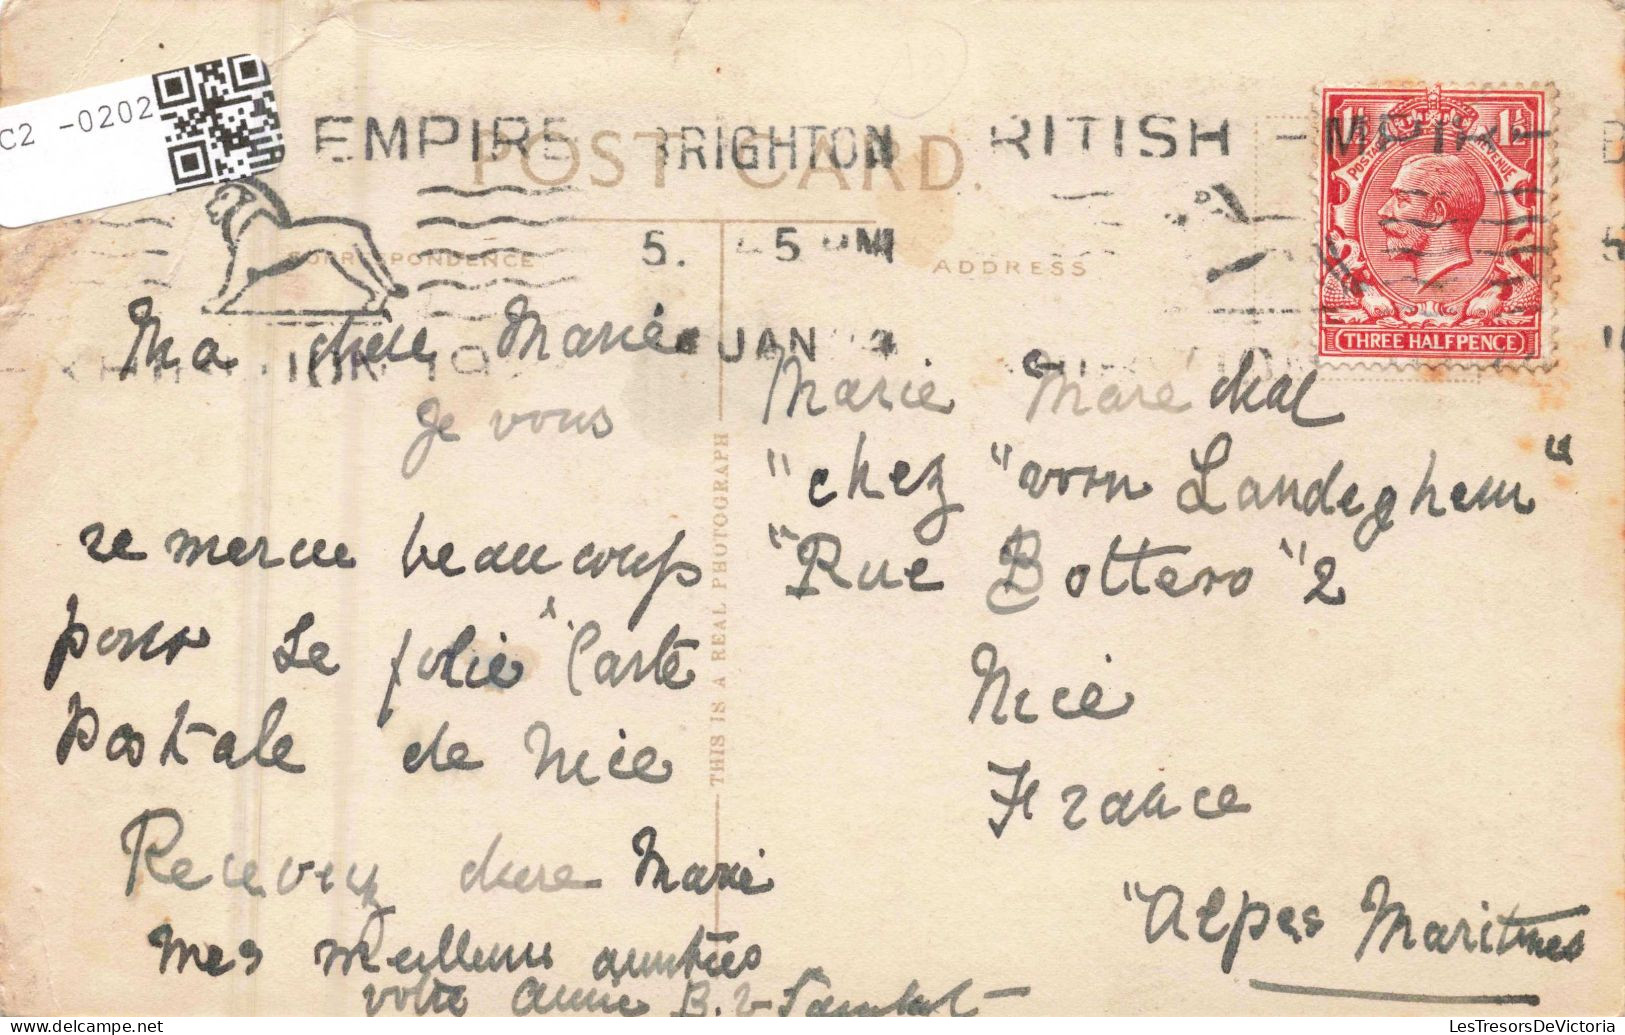 C2 -0202
EMPIRE BRIGHTON BRITISH
POST CARD.
5. 5 PM
JAN
CORRESPONDENCE
ADDRESS
POSTAGE REVENUE
1½ 1½
THREE HALFPENCE
THIS IS A REAL PHOTOGRAPH
Ma chere Marie
Je vous
remercie beaucoup
pour le jolie "Carte
Postale de Nice
Recevez chere Marie
mes meilleurs amitiés
votre amie B.
Marie Marechal
"chez "vorn Landeghem"
"Rue Bottero "2
Nice
France
"Alpes Maritimes
LesTresorsDeVictoria